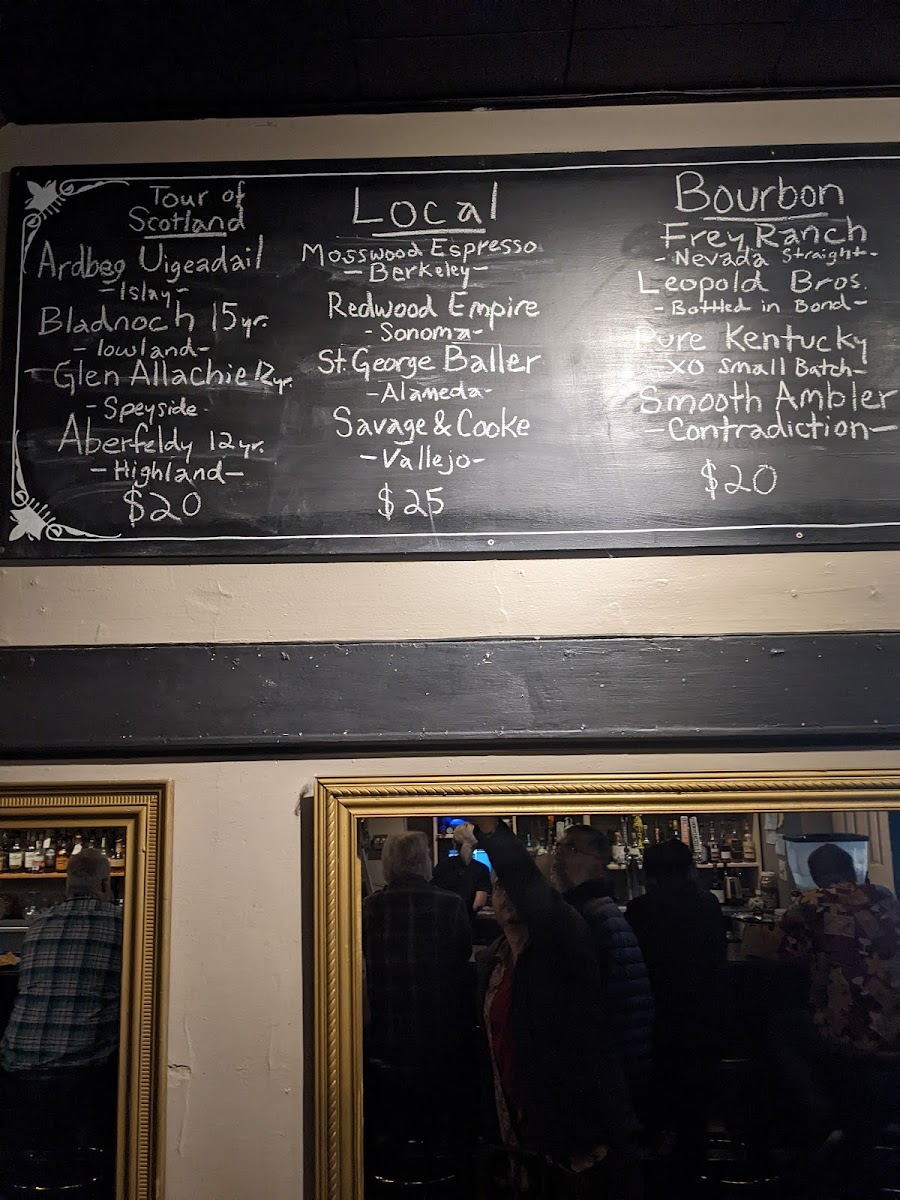 Tour of
Scotland
Ardbeg Uigeadail
-Islay-
Bladnoch 15yr.
-lowland-
Glen Allachie 12yr.
-Speyside-
Aberfeldy 12yr.
-Highland-
$20
Local
Mosswood Espresso
-Berkeley-
Redwood Empire
-Sonoma-
St. George Baller
-Alameda-
Savage & Cooke
-Vallejo-
$25
Bourbon
Frey Ranch
-Nevada Straight-
Leopold Bros.
-Bottled in Bond-
Pure Kentucky
-XO Small Batch-
Smooth Ambler
-Contradiction-
$20